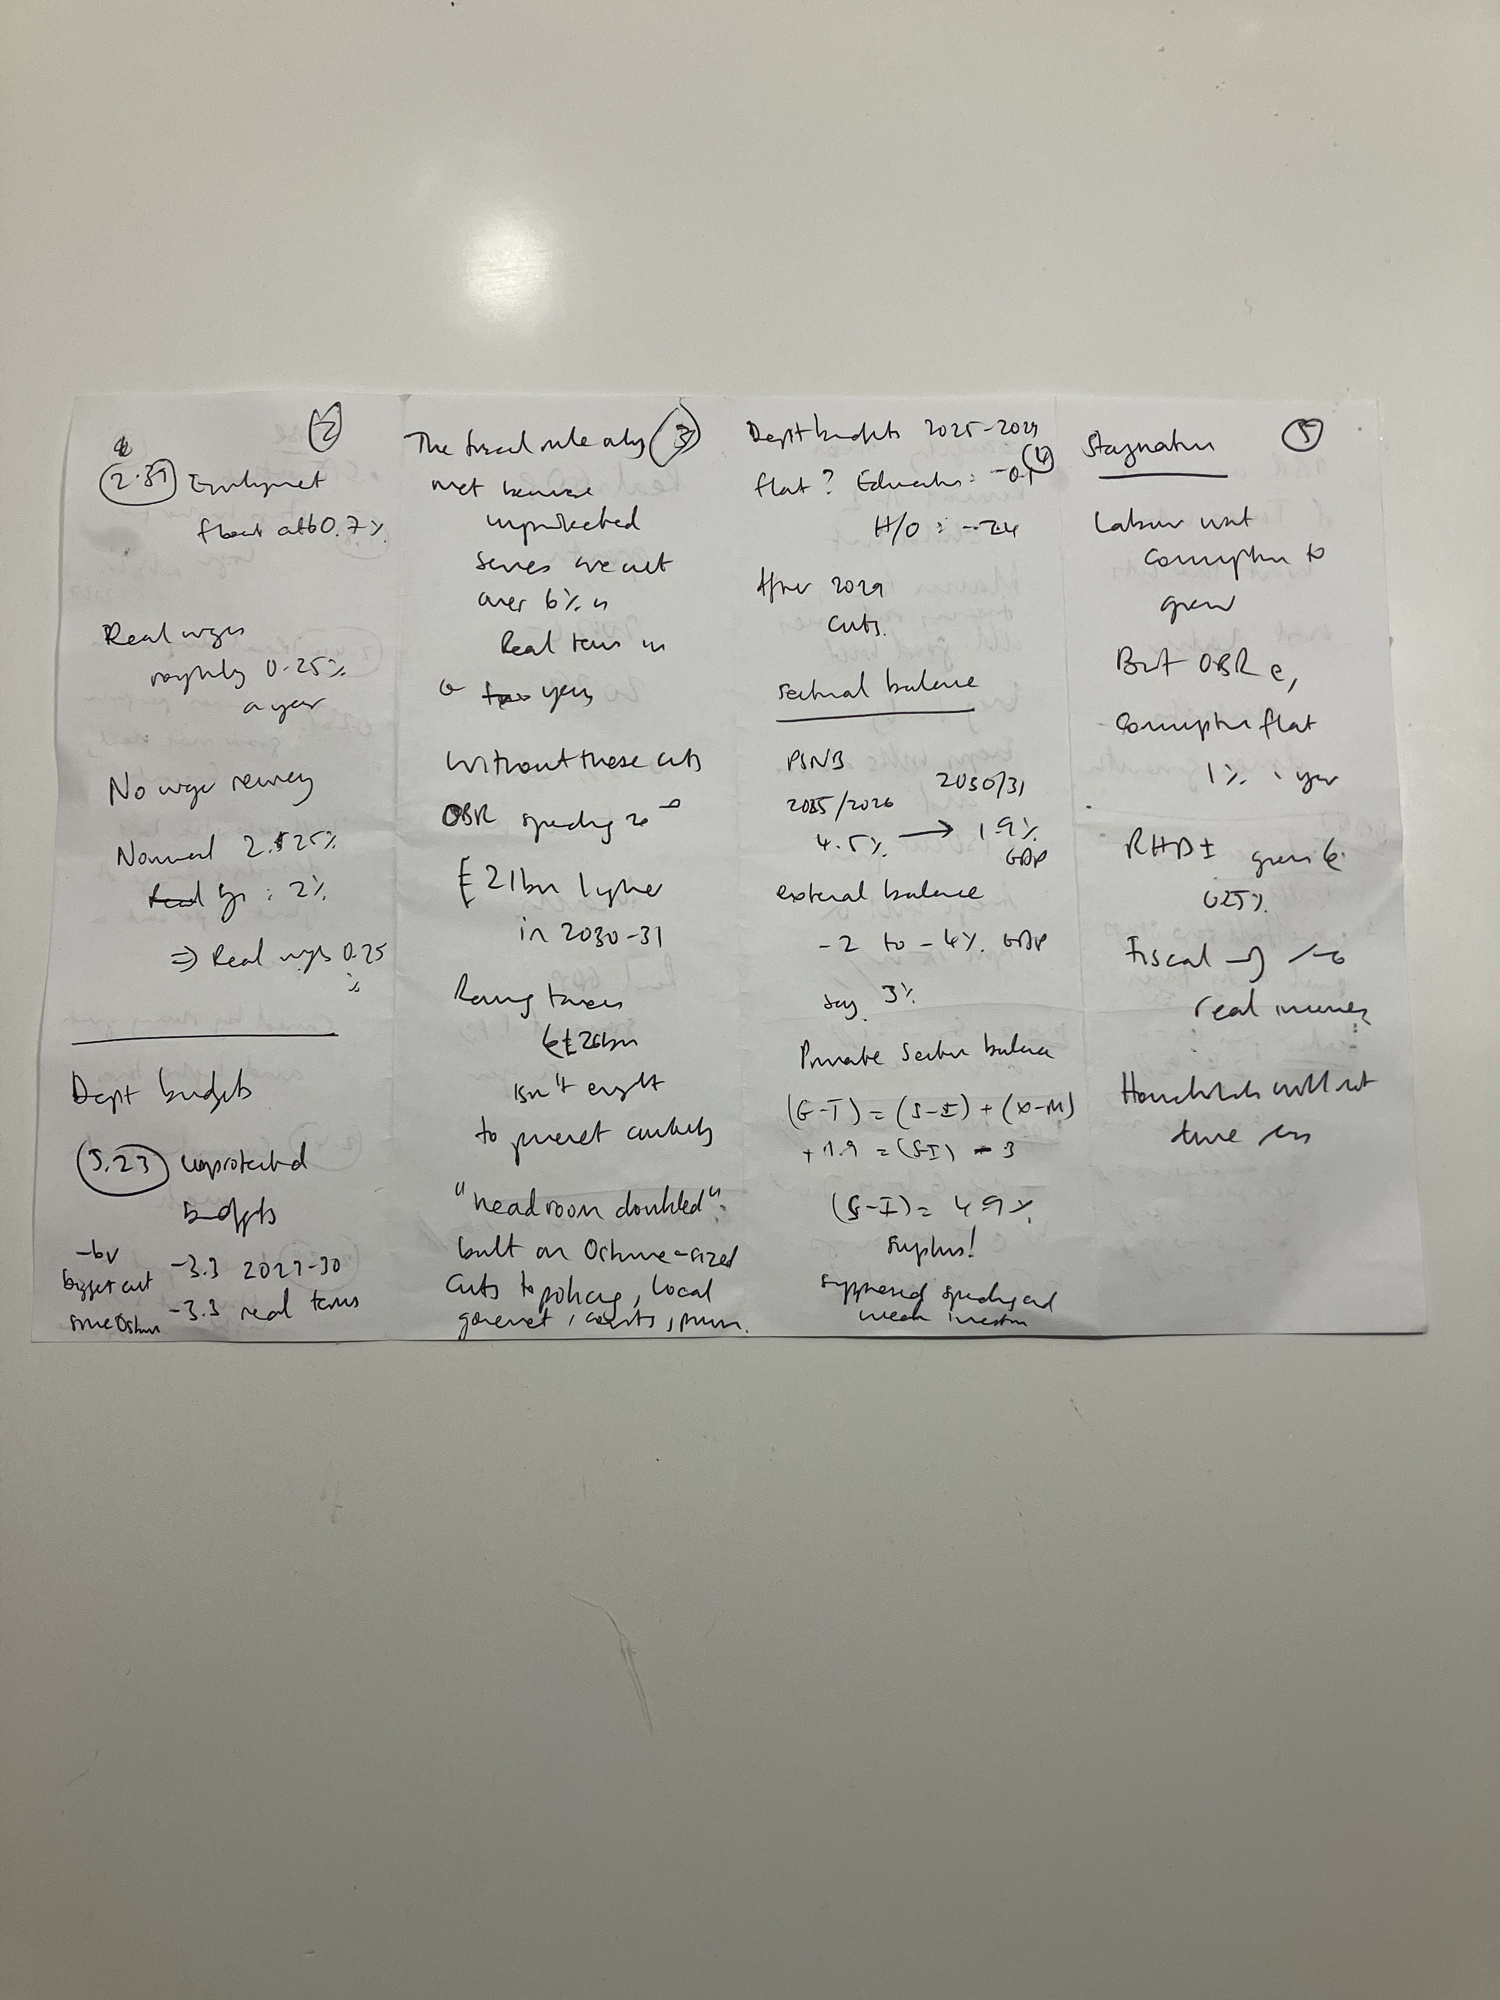 2
2.31 Employment
float at 60.7%
Real wages
roughly 0.25%
a year
No wage recovery
Nominal 2.25%
: 2%
⇒ Real wages 0.25
Dept budgets
5.23 unprotected
budgets
biggest cut -3.3 2029-30
since Osborne -3.3 real terms
The fiscal rule only 3
met because
unprotected
services are cut
over 6% in
Real terms in
years
Without these cuts
OBR spending
£21bn higher
in 2030-31
Raising taxes
£26bn
isn't enough
to prevent cutbacks
"headroom doubled"
built on Osborne-sized
cuts to policing, local
government, courts,
Dept budgets 2025-2029
4
flat? Education: -0.1
H/O : -2.4
After 2029
cuts.
Sectoral balance
PSNB
2025/2026 2030/31
4.5% → 1.9%
GDP
external balance
-2 to -4% GDP
say 3%
Private Sector balance
(G-T) = (S-I) + (X-M)
+1.9 = (S-I) - 3
(S-I) = 4.9%
surplus!
suppressed spending and
weak
Stagnation 5
Labour want
consumption to
grow
But OBR
Consumption flat
1% a year
RHDI grows
0.25%
Fiscal
real incomes
Households will not